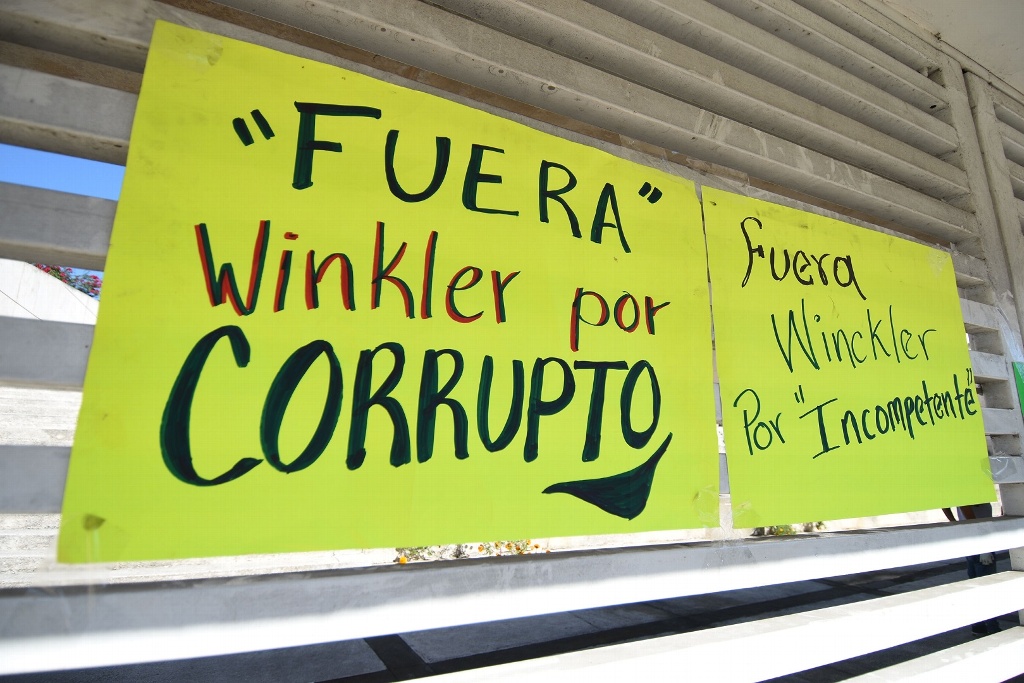 "FUERA"
Winkler por
CORRUPTO
Fuera
Winckler
Por "Incompetente"